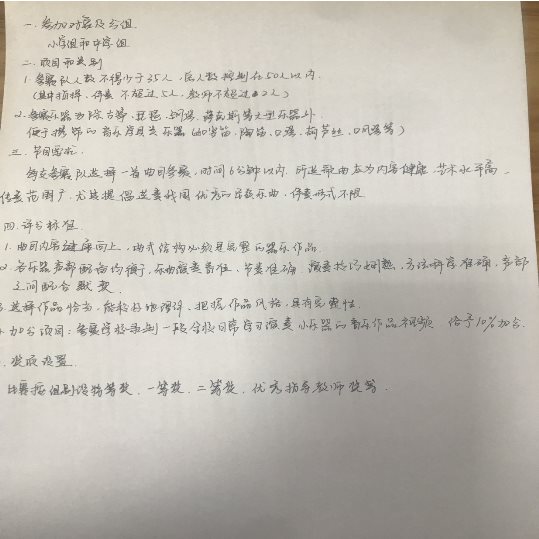 一.参加对象及分组.
小学组和中学组.
二.项目和类别
1.参赛队人数不得少于35人,总人数控制在50人以内.
(其中指挥、伴奏不超过5人,教师不超过2人)
2.参赛乐器为除古筝、琵琶、萨克斯等大型乐器外
便于携带的音乐学具类乐器(如竖笛、陶笛、口琴、葫芦丝、口风琴等)
三.节目要求.
每支参赛队选择一首曲目参赛,时间6分钟以内.所选歌曲应为内容健康、艺术水平高、
传奏范围广,尤其提倡选奏我国优秀的民族乐曲,伴奏形式不限.
四.评分标准.
1.曲目内容健康向上,曲式结构必须是完整的器乐作品.
2.各乐器声部配备均衡,乐曲演奏音准、节奏准确,演奏技巧娴熟,方法科学准确,声部
之间配合默契.
选择作品恰当,能较好地理解、把握作品风格,具有完整性.
加分项目:参赛学校录制一段全校日常学习演奏小乐器的音乐作品视频 给予10%加分.
.奖项设置.
比赛按组别设特等奖、一等奖、二等奖、优秀指导教师奖等.